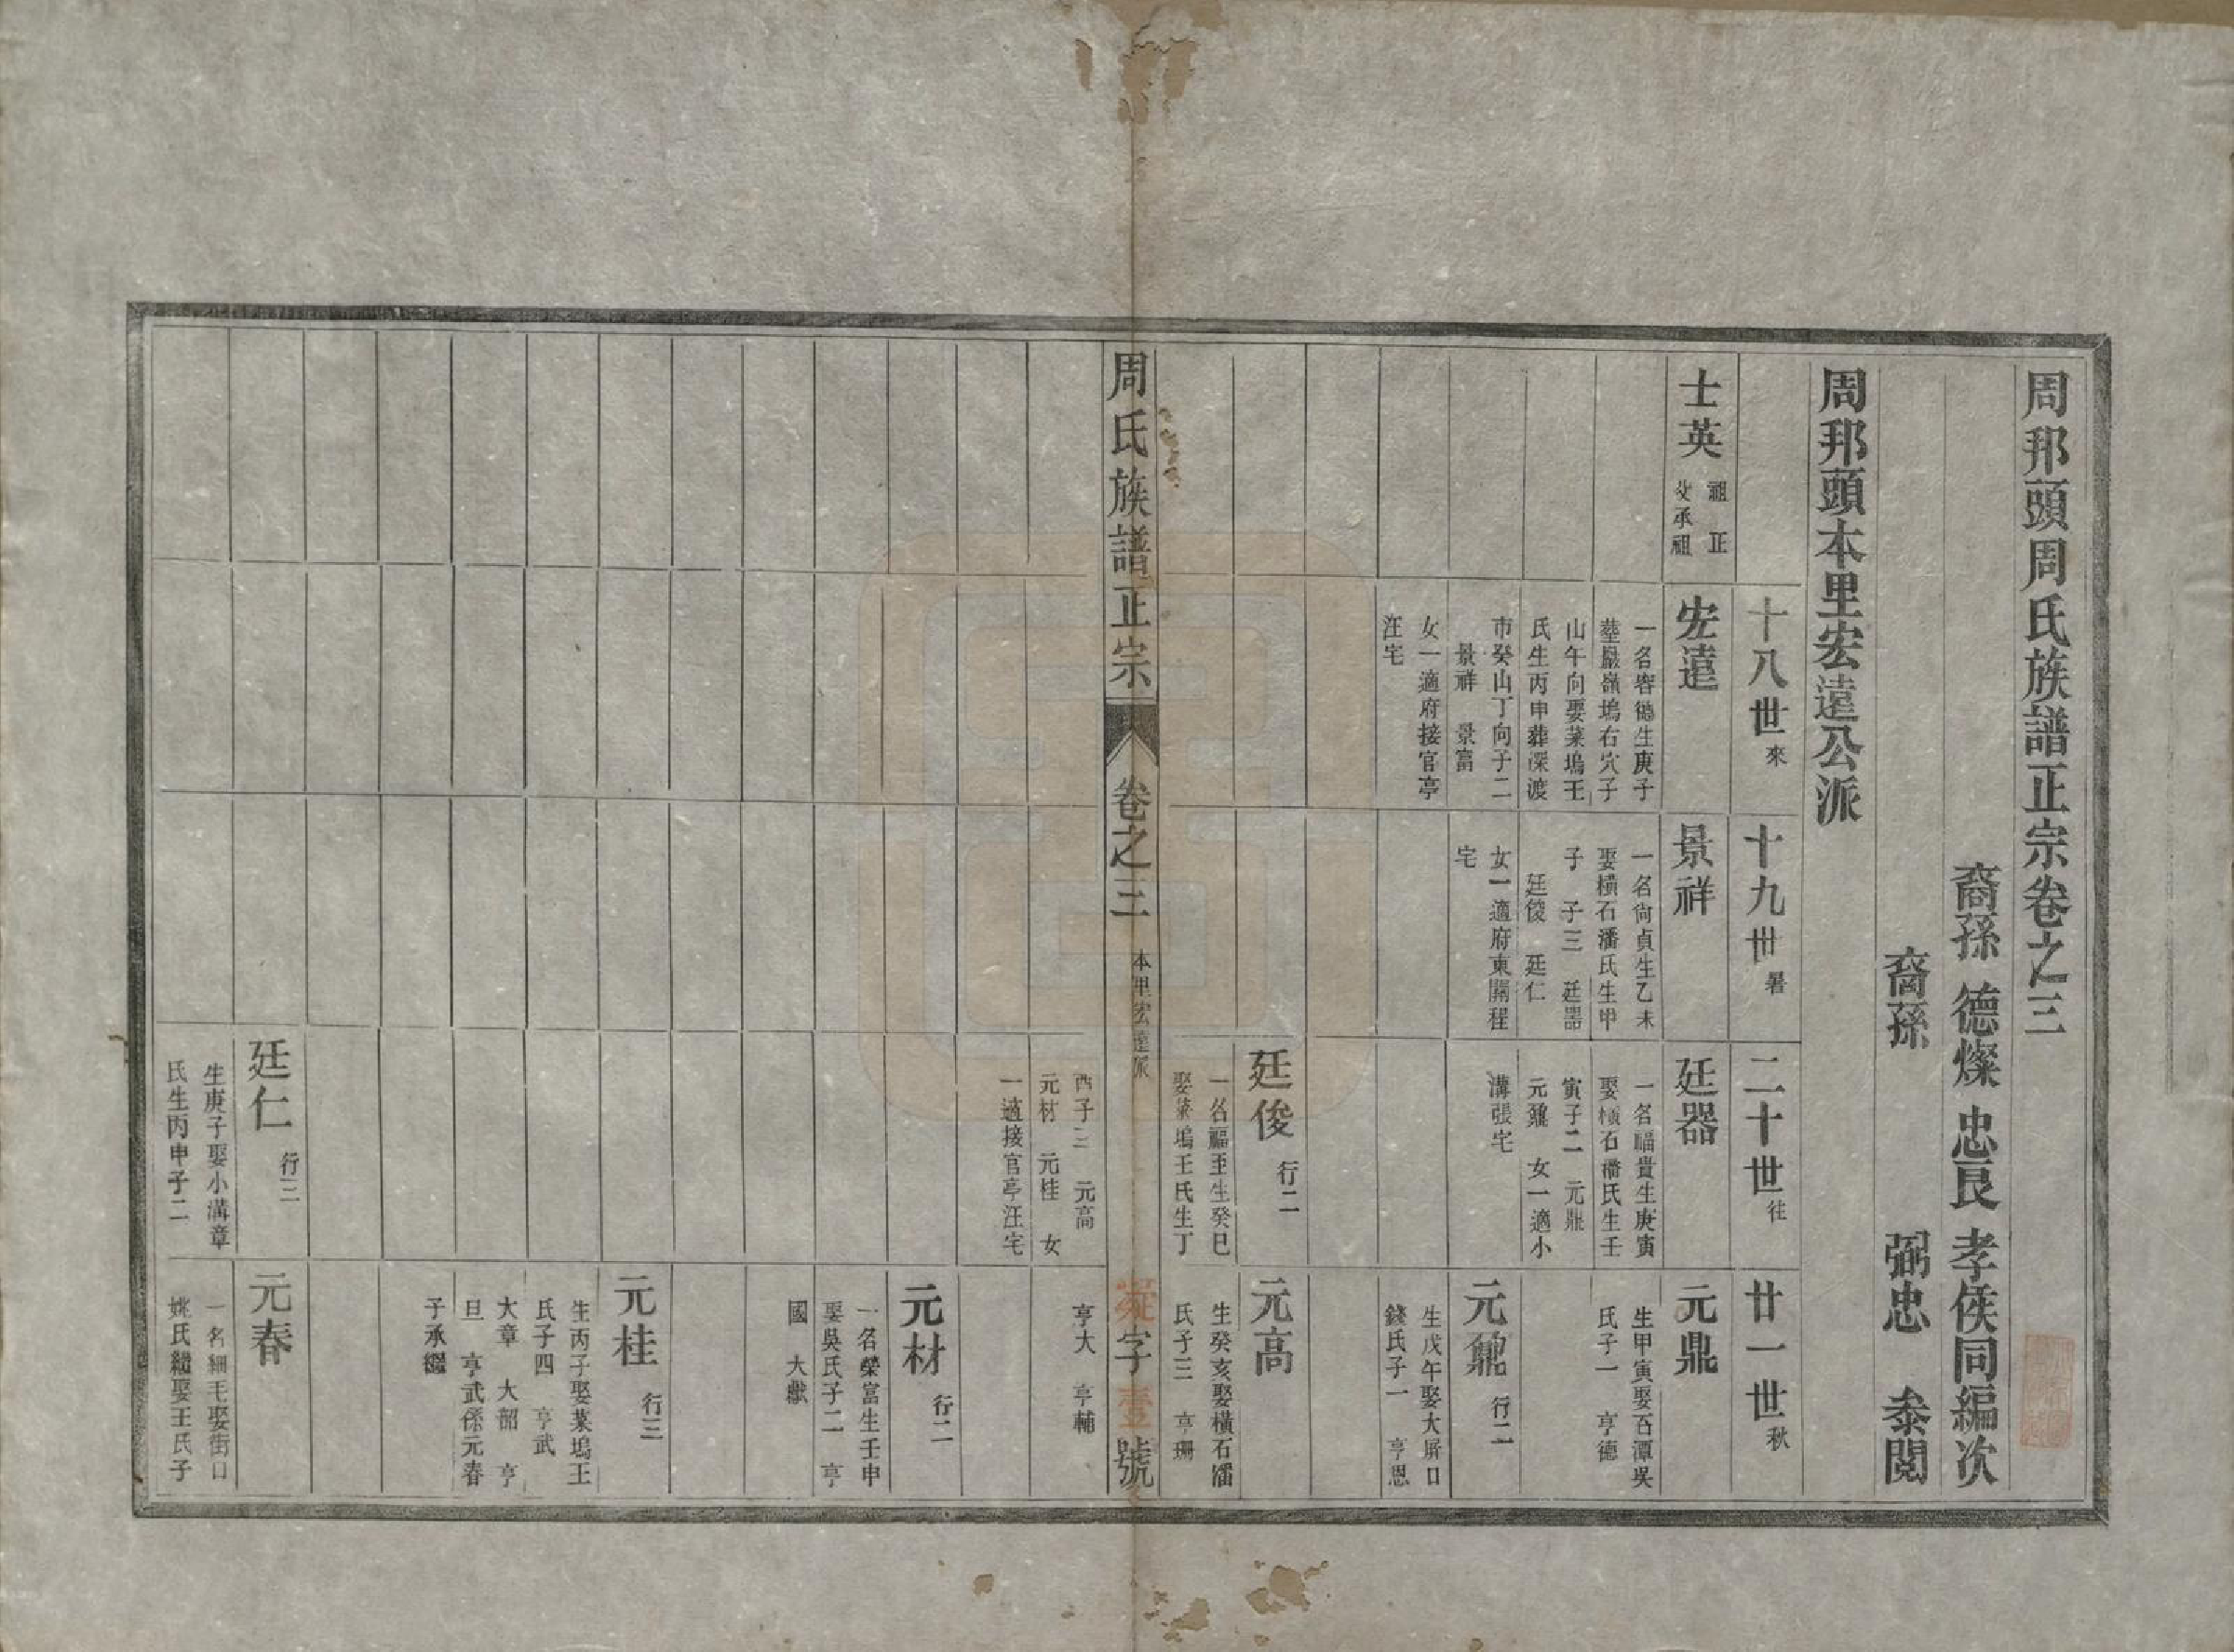 周邦頭周氏族譜正宗卷之三
裔孫 德燦 忠良 孝侯同編次
裔孫 弼忠 叅閱
周邦頭本里宏遠公派
十八世 來
十九世 暑
二十世 往
廿一世 秋
士英
祖 正
父承祖
宏遠
一名容德生庚子
墓嚴嶺塢右穴子
山午向娶葉塢王
氏生丙申葬深渡
市癸山丁向子二
景祥 景富
女一適府接官亭
汪宅
景祥
一名尙貞生乙未
娶橫石潘氏生甲
子 子三 廷器
廷俊 廷仁
女一適府東關程
宅
廷器
一名福貴生庚寅
娶橫石潘氏生壬
寅子二 元鼎
元鼐 女一適小
溝張宅
元鼎
生甲寅娶百潭吳
氏子一 亨德
元鼐 行二
生戊午娶大屏口
錢氏子一 亨恩
廷俊 行二
一名福至生癸巳
娶葉塢王氏生丁
元高
生癸亥娶橫石潘
氏子三 亨珊
周氏族譜正宗 卷之三 本里宏遠派 字壹號
酉子三 元高
元材 元桂 女
一適接官亭汪宅
亨大 亨輔
元材 行二
一名榮富生壬申
娶吳氏子二 亨
國 大猷
元桂 行三
生丙子娶葉塢王
氏子四 亨武
大章 大韶 亨
旦 亨武係元春
子承繼
廷仁 行三
生庚子娶小溝章
氏生丙申子二
元春
一名細毛娶街口
姚氏續娶王氏子